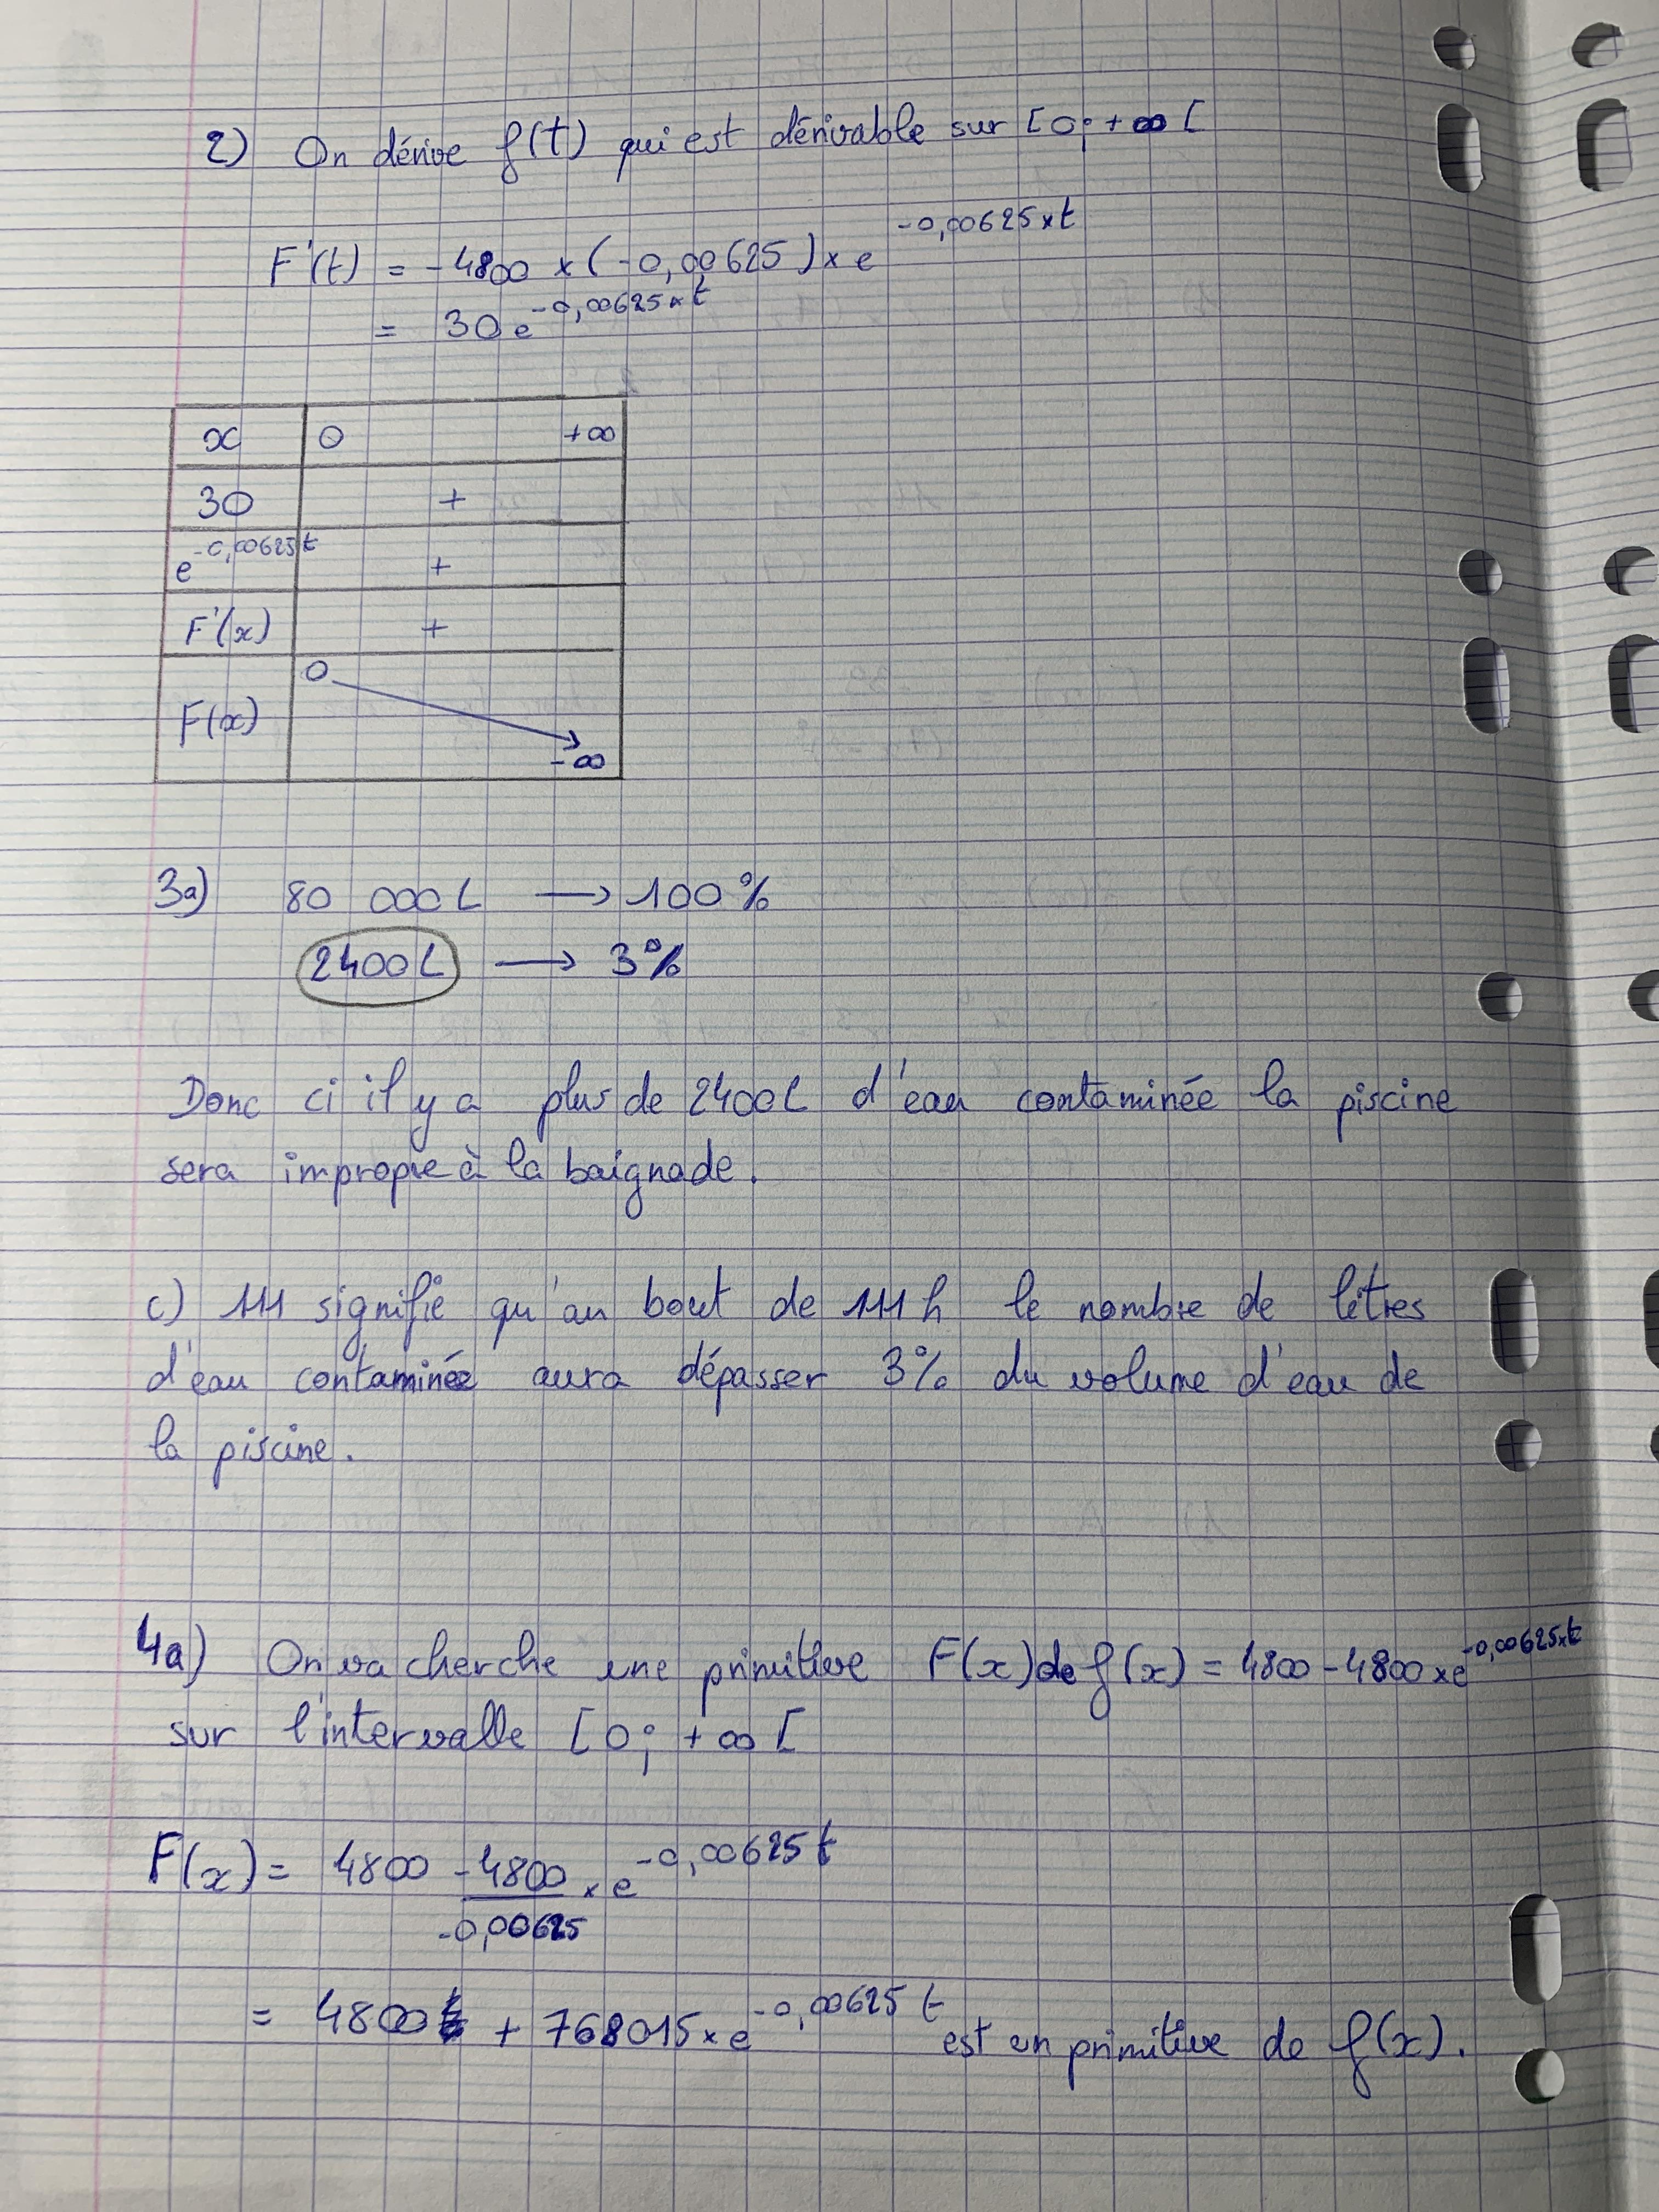 2) On dérive f(t) qui est dérivable sur [0;+∞[
F'(t) = -4800 x (-0,00625) x e^-0,00625xt
= 30e^-0,00625xt
x 0 +∞
30 +
e^-0,00625t +
F'(x) +
F(x) 0 -∞
3a) 80 000L → 100%
2400L → 3%
Donc ci il y a plus de 2400L d'eau contaminée la piscine
sera impropre à la baignade.
c) 111 signifie qu'au bout de 111h le nombre de litres
d'eau contaminée aura dépasser 3% du volume d'eau de
la piscine.
4a) On va cherche une primitive F(x) de f(x) = 4800 - 4800 x e^-0,00625xt
sur l'intervalle [0; +∞[
F(x) = 4800 -4800/-0,00625 x e^-0,00625t
= 4800t + 768015 x e^-0,00625t est un primitive de f(x).